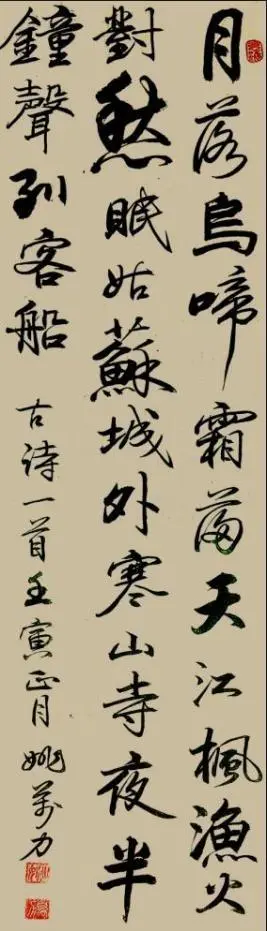 月落烏啼霜滿天江楓漁火
對愁眠姑蘇城外寒山寺夜半
鐘聲到客船
古诗一首壬寅正月姚萬力